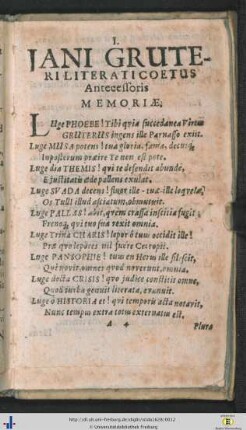 I.
JANI GRUTE-
RI LITERATI COETUS
Antecessoris
MEMORIÆ.
LUge PHOEBE! Tibi qvia succedanea Virtus
GRUTERUS ingens ille Parnasso exiit.
Luge MUSA potens! tua gloria, fama, decus
Inposterum præire Te non est potis.
Luge dia THEMIS! qvi te defendit abunde,
Et justitiam æde pallens exulat.
Luge SVADA decens! fluxit ille - tua-ille
Os Tulli illud asciatum, obmutuit.
Luge PALLAS! abit, qvem crassa inscitia fugit
Frenos, qvi in vexit omnia.
Luge Trina CHARIS! lepor ô tuus occidit ille!
Præ qvo lepores nil fuere Cecropii.
Luge PANSOPHIE! tuum en Herus ille
Qvi novit omnes qvod noverunt, omnia.
Luge docta CRISIS! qvo judice constitit omne,
Quod turba genuit literata, exannit.
Luge ô HISTORIA et! qvi temporis acta notavit,
Nunc tempus extra totus externatus est.
A Plura
http://dl.ub.uni-freiburg.de/diglit/
© Universitätsbibliothek Freiburg